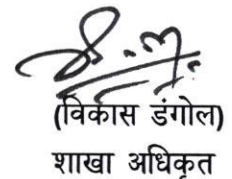 (विकास डंगोल)
शाखा अधिकृत